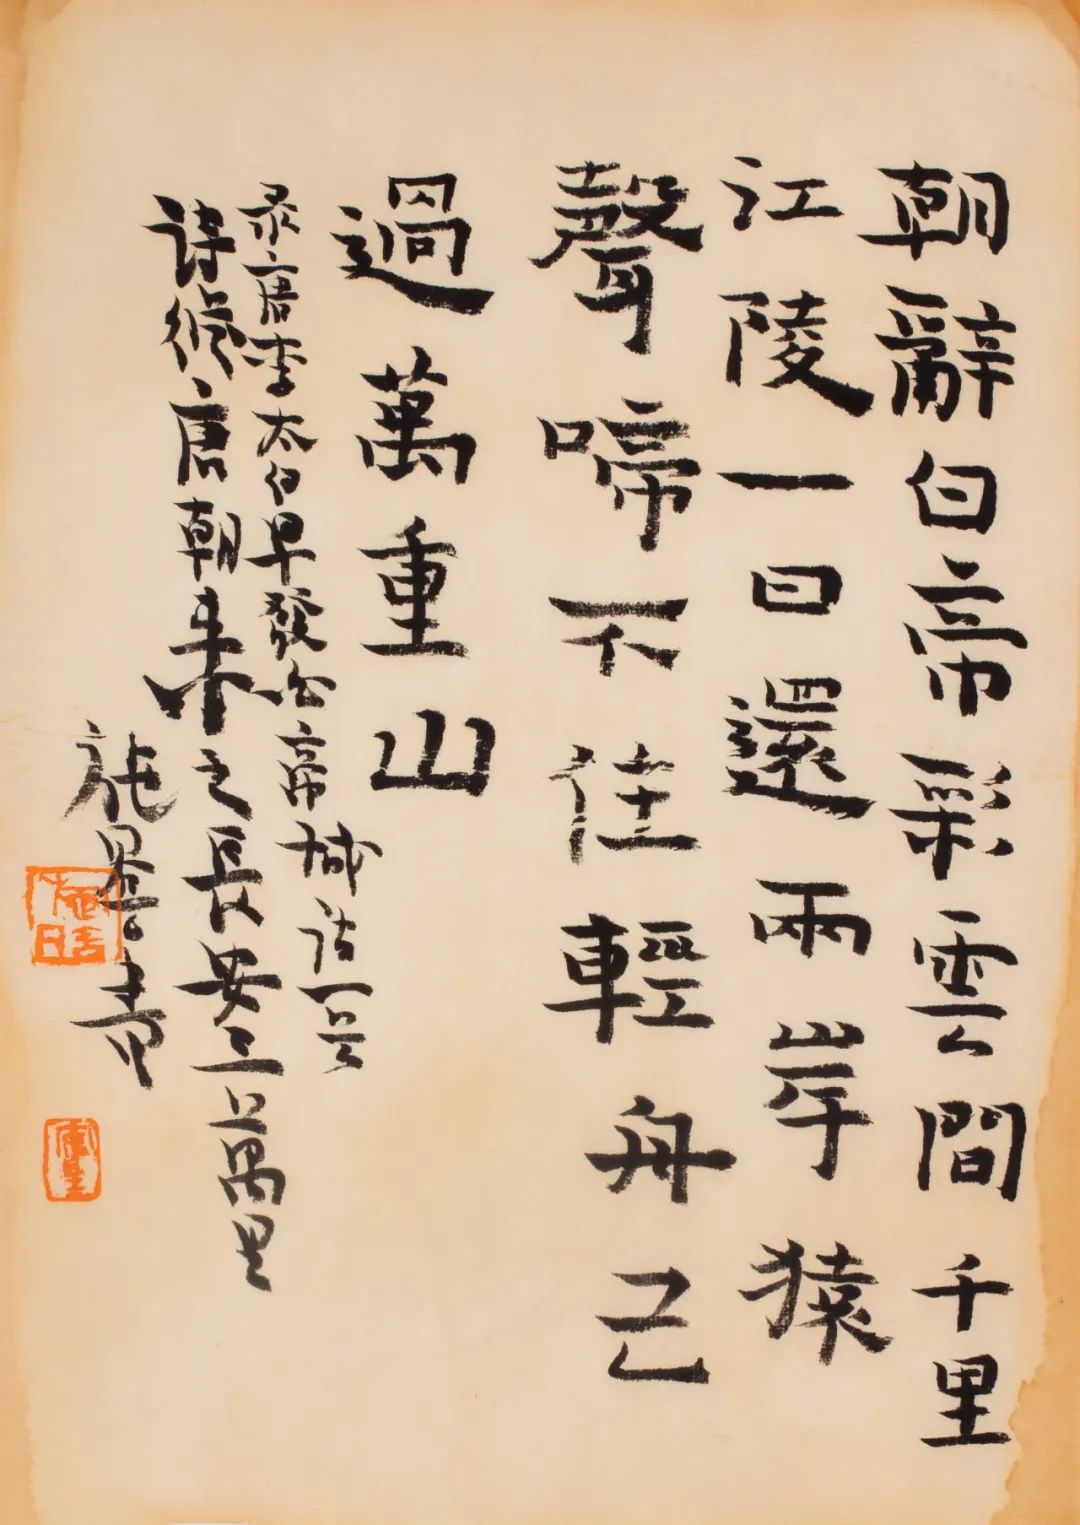 朝辭白帝彩雲間千里
江陵一日還兩岸猿
聲啼不住輕舟已
過萬重山
录唐李太白早發白帝城诗一首
诗從唐朝来之長安三萬里
書